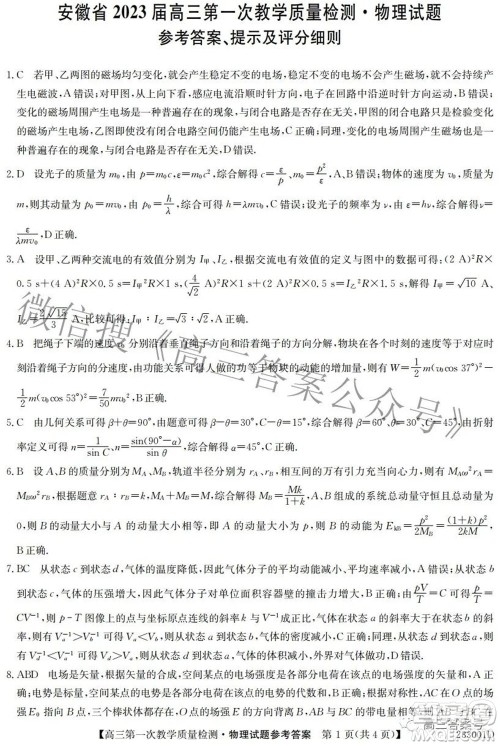 安徽省 2023 届高三第一次教学质量检测·物理试题
参考答案、提示及评分细则
1. C 若甲、乙两图的磁场均匀变化,就会产生稳定不变的电场,稳定不变的电场不会产生磁场,就不会持续产
生电磁波,A 错误;对甲图,从上向下看,感应电流沿顺时针方向,电子在回路中沿逆时针方向运动,B 错误;
变化的磁场周围产生电场是一种普遍存在的现象,与闭合电路是否存在无关,甲图的闭合电路只是检验变化
的磁场产生电场,乙图即使没有闭合电路空间仍能产生电场,C 正确;同理,变化的电场周围产生磁场也是一
种普遍存在的现象,与闭合电路是否存在无关,D 错误.
2. D 设光子的质量为 m₀,由 p=m₀c,ε=m₀c²,综合解得 c=ε/p、m₀=p²/ε,A、B 错误;物体的速度为 v₀,质量为
m,则其动量为 p₀=mv₀,由 p₀=h/λ,综合可得 h=λmv₀,C 错误;设光子的频率为 ν,由 ε=hν,综合解得 ν=
ε/λmv₀,D 正确.
3. A 设甲、乙两种交流电的有效值分别为 I甲、I乙,根据交流电有效值的定义与图中的数据可得:(2 A)²R×
0.5 s+(4 A)²R×0.5 s=I甲²R×1 s,(4/√2 A)²R×1 s+(2 A)²R×0.5 s=I乙²R×1.5 s,解得 I甲=√10 A、
I乙=2√15/3 A,比较可得:I甲∶I乙=√3∶√2,A 正确.
4. B 把绳子下端的速度 v₀ 分别沿着垂直绳子方向和沿着绳子方向分解,物块在各个时刻的速度等于对应时
刻沿着绳子方向的分速度,由功能关系可得人做的功等于物块的动能的增加量,则有 W=1/2 m(v₀cos 37°)²−
1/2 m(v₀cos 53°)²=7/50 mv₀²,B 正确.
5. C 由几何关系可得 β+θ=90°,由题意可得 β−θ=30°、C−θ=15°,综合解得 β=60°、θ=30°、C=45°,由折射
率定义可得 n=1/sin C、n=sin(90°−α)/sin θ,综合解得 α=45°,C 正确.
6. B 设 A、B 的质量分别为 M_A、M_B,轨道半径分别为 r_A、r_B,相互间的万有引力充当向心力,则有 M_Aω²r_A=
M_Bω²r_B,根据题意 r_A∶r_B=k,M_A+M_B=M,综合解得 M_B=Mk/1+k,A、B 组成的系统总动量守恒且总动量为
0,则 B 的动量大小与 A 的动量大小相等,即 A 的动量大小为 p,则 B 的动能为 E_kB=p²/2M_B=(1+k)p²/2kM,
B 正确.
7. BC 从状态 c 到状态 d,气体的温度降低,因此气体分子的平均动能减小、平均速率减小,A 错误;从状态 b
到状态 c,气体的压强增大,因此气体分子对单位面积容器壁的撞击力增大,B 正确;由 pV/T=C 可得 p/T=
CV⁻¹,则 p-T 图像上的点与坐标原点连线的斜率 k 与 V⁻¹ 成正比,气体在状态 a 的斜率大于在状态 b 的斜
率,则有 Va⁻¹>Vb⁻¹ 可得 Va<Vb,则从状态 a 到状态 b,气体的密度减小,C 正确;同理,从状态 d 到状态 a,则
有 Va⁻¹>Vd⁻¹ 可得 Vd>Va,气体的体积减小,外界对气体做功,D 错误.
8. ABD 电场是矢量,根据矢量的合成,空间某点的电场强度是各部分电荷在该点的电场强度的矢量和,A 正
确;电势是标量,空间某点的电势是各部分电荷在该点的电势的代数和,B 正确;根据对称性,AC 在 O 点的场
强 E₀ 指向 B 点,三个棒状都存在,O 点的场强 E 的方向背离 B,AB 与 BC 的带电量相等,则 AB、BC 在 O 点
【高三第一次教学质量检测·物理试题参考答案 第 1 页(共 4 页)】
23300110
微信搜《高三答案公众号》
高三答案号